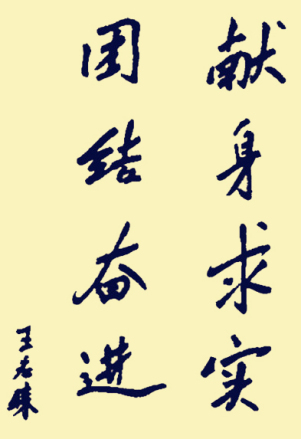 献身求实
团结奋进
王志珠